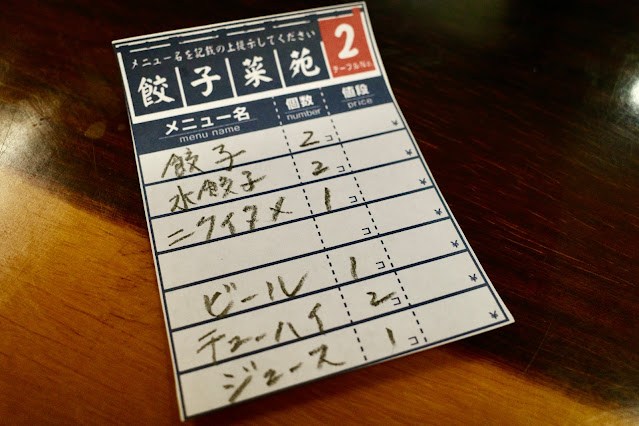 メニュー名を記載の上提示してください
餃子菜苑
2
テーブルNo.
メニュー名 個数 値段
menu name number price
餃子 2コ ¥
水餃子 2コ ¥
ニクイタメ 1コ ¥
コ ¥
ビール 1コ ¥
チューハイ 2コ ¥
ジュース 1コ